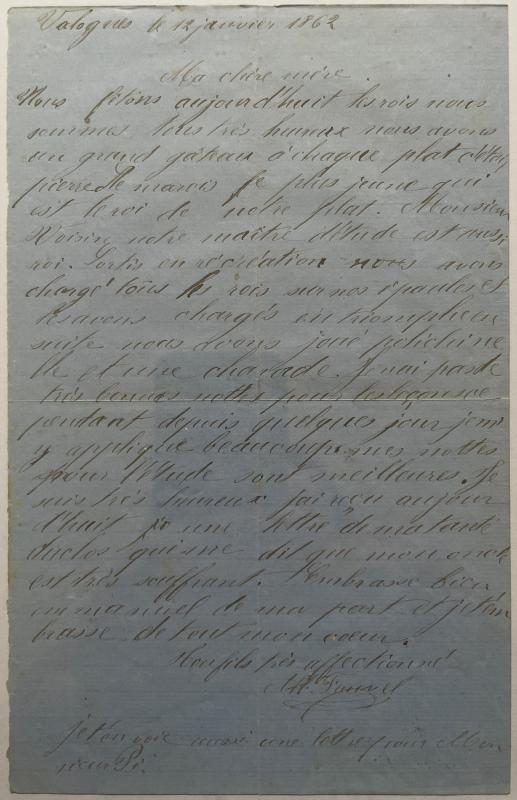 Valognes le 12 janvier 1862
Ma chère mère.
Nous fêtons aujourd'huit les rois nous
sommes tous très hureux nous avons
un grand gâteau à chaque plat c'était
pierre le marois le plus jeune qui
est le roi de notre plat. Monsieur
Voisin notre maître d'étude est aussi
roi. Sortis en récréation nous avons
chargé tous les rois sur nos épaules et
les avons chargés en triomphe en
suite nous avons joué polichine
lle et une charade. Je n'ai pas de
très bonnes nottes pour les leçons ce
pendant depuis quelques jour je m'
y applique beaucoup mes nottes
pour l'étude sont meilleures. Je
suis très hureux j'ai reçu aujour
d'huit une lettre de ma tante
duclos qui me dit que mon oncle
est très souffrant. Embrasse bien
emmanuel de ma part et je t'em
brasse de tout mon cœur.
Ton fils très affectionné
je t'envoie aussi une lettre pour Mon
sieur